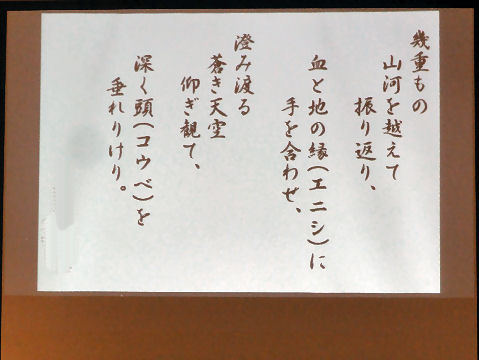 幾重もの
山河を越えて
振り返り、
血と地の縁(エニシ)に
手を合わせ、
澄み渡る
蒼き天空
仰ぎ観て、
深く頭(コウベ)を
垂れりけり。